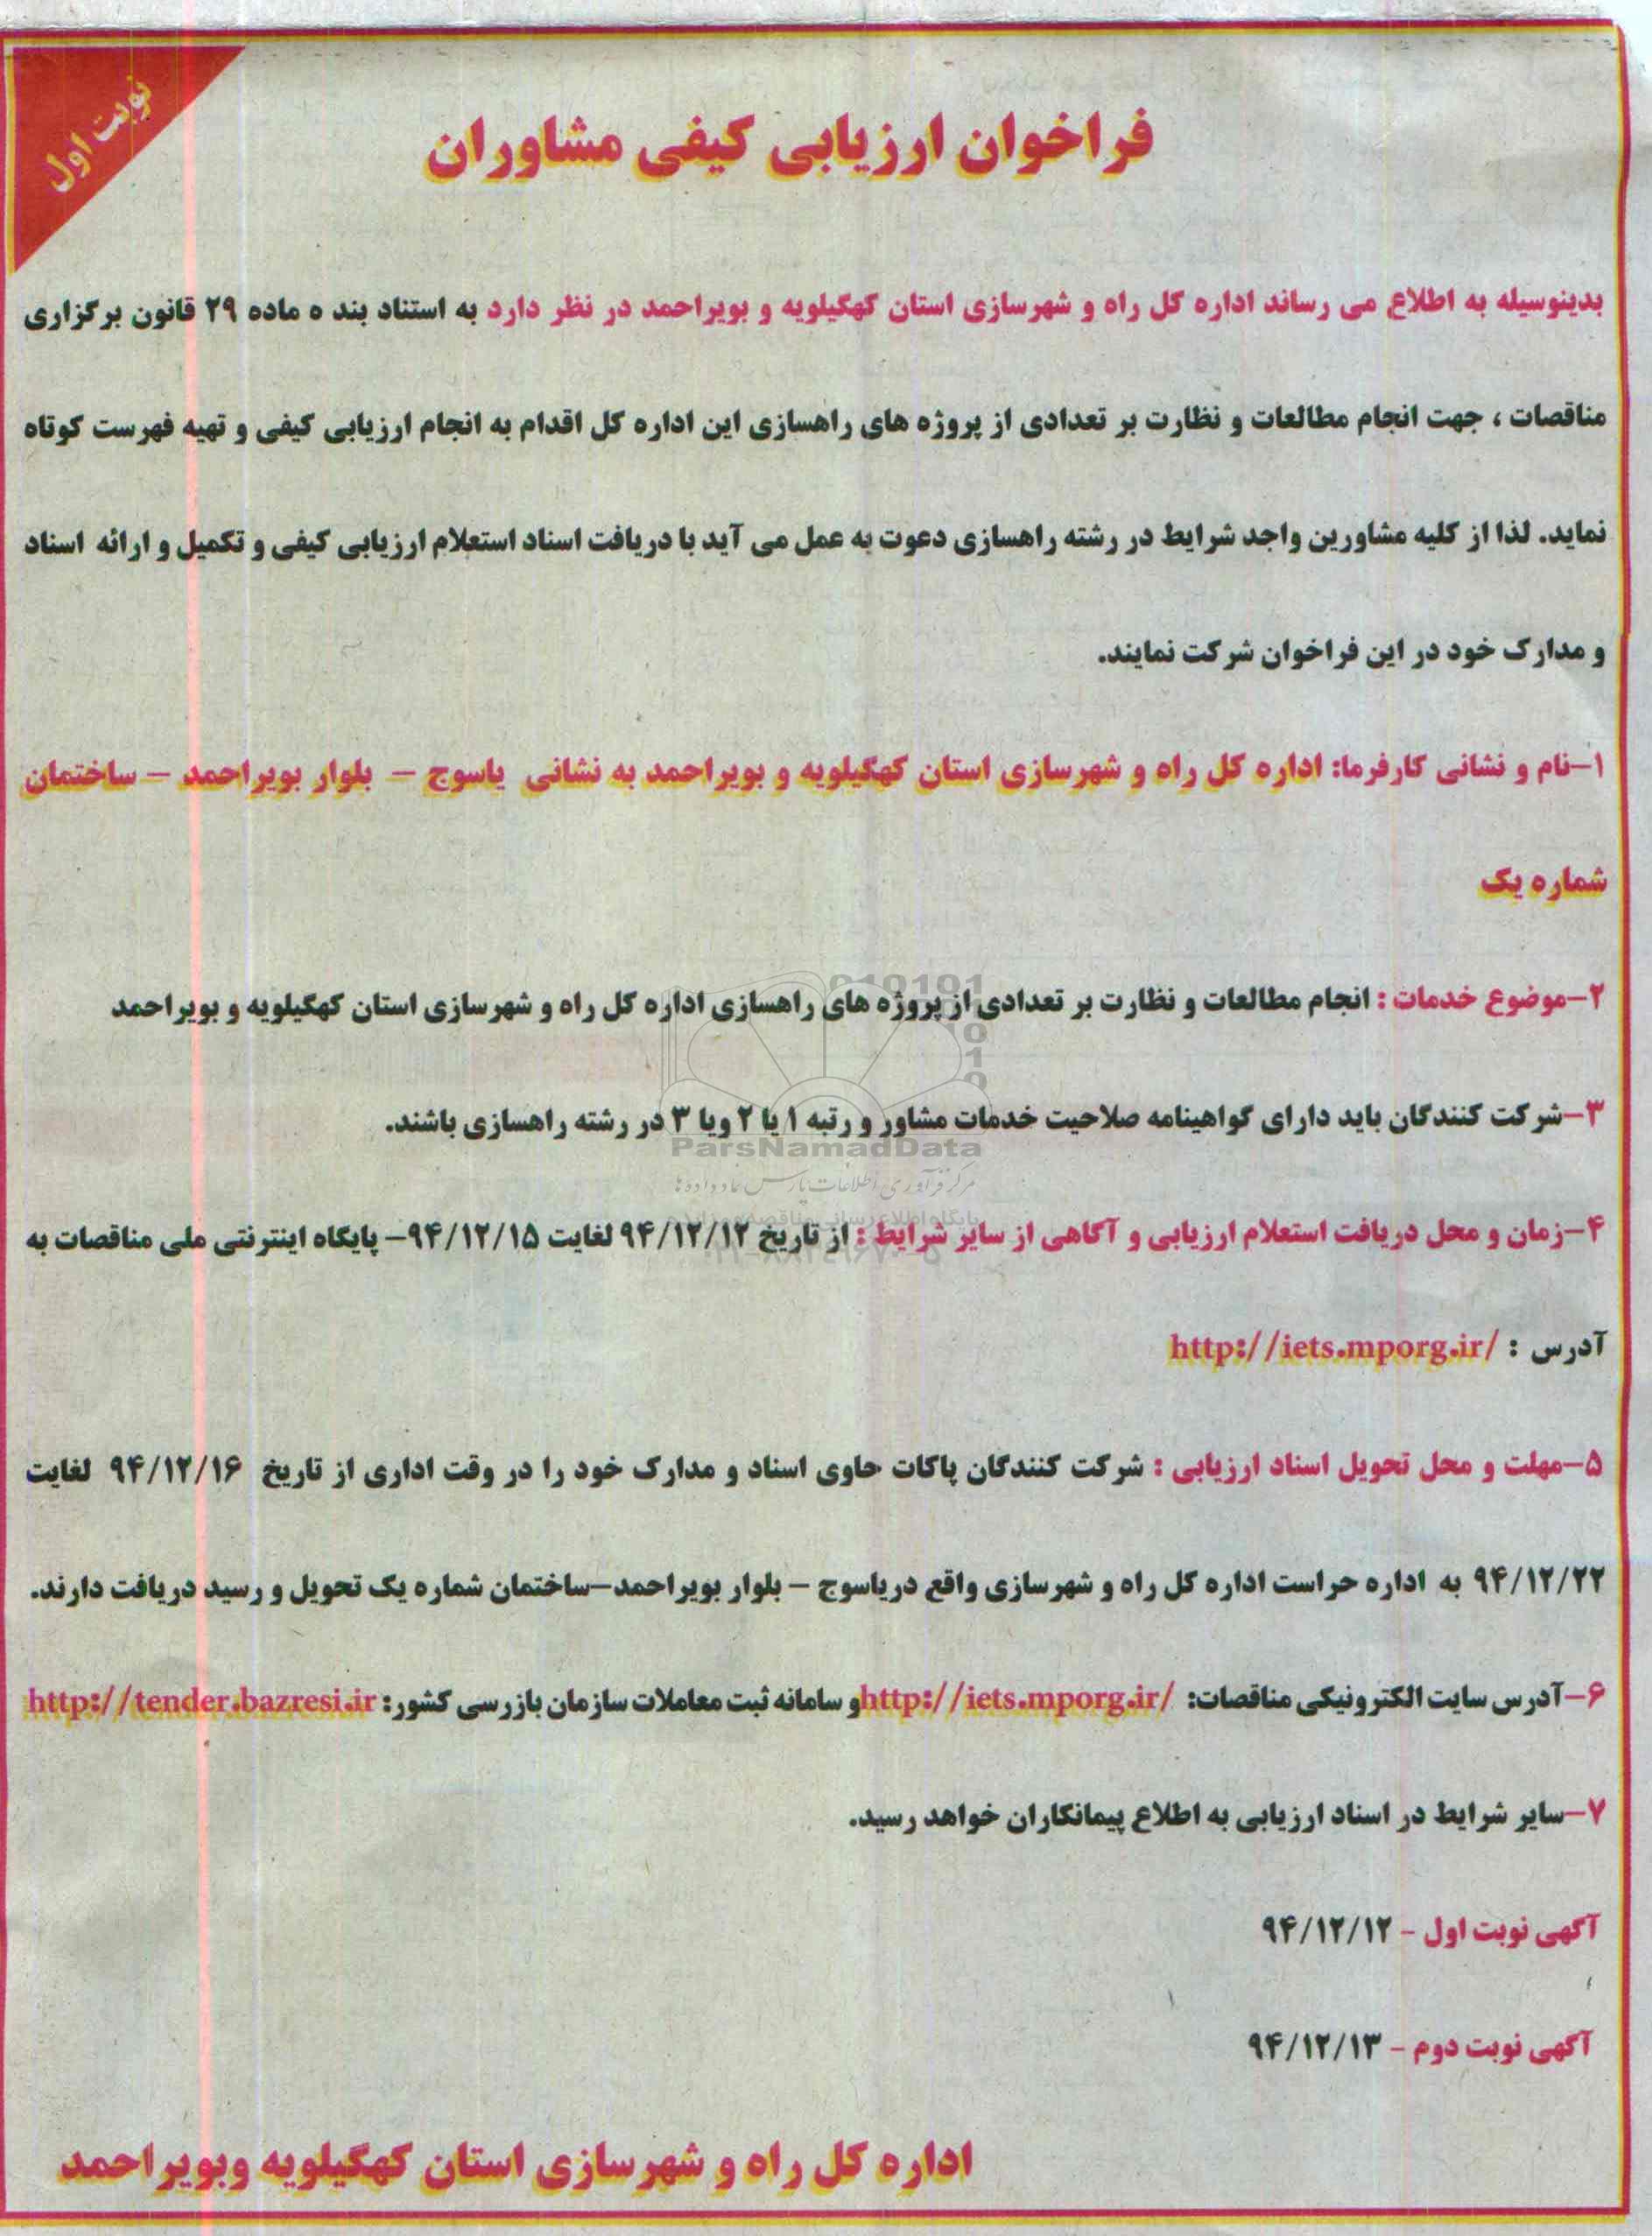 نوبت اول
فراخوان ارزیابی کیفی مشاوران
بدینوسیله به اطلاع می رساند اداره کل راه و شهرسازی استان کهگیلویه و بویراحمد در نظر دارد به استناد بند ه ماده ۲۹ قانون برگزاری
مناقصات ، جهت انجام مطالعات و نظارت بر تعدادی از پروژه های راهسازی این اداره کل اقدام به انجام ارزیابی کیفی و تهیه فهرست کوتاه
نماید. لذا از کلیه مشاورین واجد شرایط در رشته راهسازی دعوت به عمل می آید با دریافت اسناد استعلام ارزیابی کیفی و تکمیل و ارائه اسناد
و مدارک خود در این فراخوان شرکت نمایند.
۱-نام و نشانی کارفرما: اداره کل راه و شهرسازی استان کهگیلویه و بویراحمد به نشانی یاسوج – بلوار بویراحمد – ساختمان
شماره یک
۲-موضوع خدمات : انجام مطالعات و نظارت بر تعدادی از پروژه های راهسازی اداره کل راه و شهرسازی استان کهگیلویه و بویراحمد
۳-شرکت کنندگان باید دارای گواهینامه صلاحیت خدمات مشاور و رتبه ۱ یا ۲ ویا ۳ در رشته راهسازی باشند.
ParsNamadData
مرکز فرآوری اطلاعات پارس نماد داده ها
۴-زمان و محل دریافت استعلام ارزیابی و آگاهی از سایر شرایط : از تاریخ ۹۴/۱۲/۱۲ لغایت ۹۴/۱۲/۱۵– پایگاه اینترنتی ملی مناقصات به
آدرس : http://iets.mporg.ir/
۵-مهلت و محل تحویل اسناد ارزیابی : شرکت کنندگان پاکات حاوی اسناد و مدارک خود را در وقت اداری از تاریخ ۹۴/۱۲/۱۶ لغایت
۹۴/۱۲/۲۲ به اداره حراست اداره کل راه و شهرسازی واقع دریاسوج – بلوار بویراحمد–ساختمان شماره یک تحویل و رسید دریافت دارند.
۶-آدرس سایت الکترونیکی مناقصات: http://iets.mporg.ir/و سامانه ثبت معاملات سازمان بازرسی کشور: http://tender.bazresi.ir
۷-سایر شرایط در اسناد ارزیابی به اطلاع پیمانکاران خواهد رسید.
آگهی نوبت اول - ۹۴/۱۲/۱۲
آگهی نوبت دوم - ۹۴/۱۲/۱۳
اداره کل راه و شهرسازی استان کهگیلویه وبویراحمد